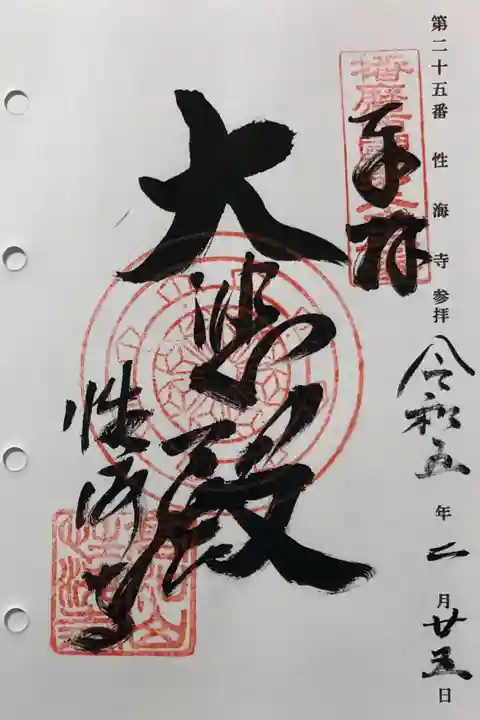 第二十五番 性海寺参拝 令和五年二月廿五日
奉拝
大悲殿
性海寺